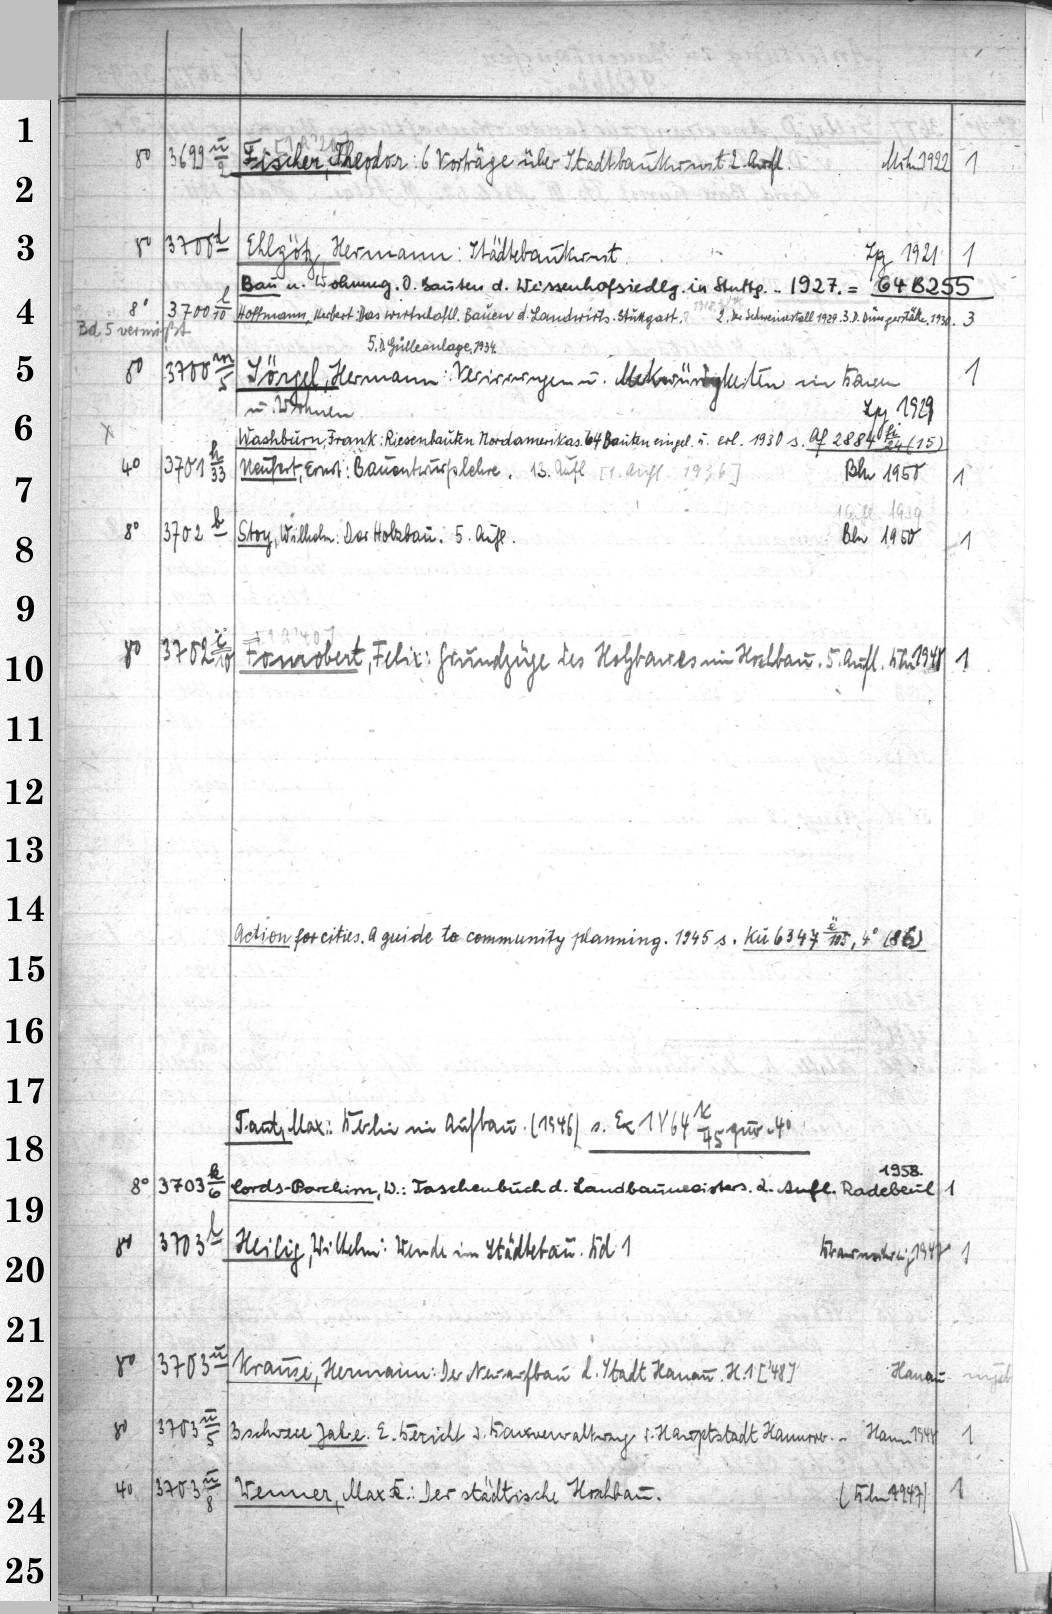 1
8° 3699 ü/2 Fischer, Theodor: 6 Vorträge über Stadtbaukunst 2. Aufl. Mch 1922 1
2
3
8° 3700 Ehlgötz, Hermann: Städtebaukunst. Lpz 1921 1
Bau u. Wohnung. D. Bauten d. Weissenhofsiedlg. in Stuttg. .. 1927. = 64 B 255
4
8° 3700 l/10 Hoffmann, Herbert: Das wirtschaftl. Bauen d. Landwirts. Stuttgart. 2. Der Schweinestall 1929. 3. D. Düngerstätte, 1930. 3
Bd. 5 vermißt
5. D. Gülleanlage, 1934.
5
8° 3700 m/5 Sörgel, Hermann: Verirrungen u. Merkwürdigkeiten im Bauen 1
u. Wohnen Lpz 1929
6
Washburn, Frank: Riesenbauten Nordamerikas. 64 Bauten eingel. u. erl. 1930 s. Af 2884 fi/24 (15)
4° 3701 h/33 Neufert, Ernst: Bauentwurfslehre. 13. Aufl [1. Aufl. 1936] Bln 1950 1
7
8° 3702 b Stoy, Wilhelm: Der Holzbau. 5. Aufl. Bln 1950 1
8
9
8° 3702 i/10 Fonrobert, Felix: Grundzüge des Holzbaues im Hochbau. 5. Aufl. Bln 1948 1
10
11
12
13
14
Action for cities. A guide to community planning. 1945 s. Kü 6347 ë/105, 4° (86)
15
16
17
Taut, Max: Berlin im Aufbau. (1946) s. Ex 1 V 64 k/45 quer-4°
18
1958.
8° 3703 k/6 Cords-Parchim, W.: Taschenbuch d. Landbaumeisters. 2. Aufl. Radebeul 1
19
8° 3703 l Heilig, Wilhelm: Wende im Städtebau. Bd 1 Braunschweig 1948 1
20
21
8° 3703 ü Krause, Hermann: Der Neuaufbau d. Stadt Hanau. H. 1 ['48] Hanau
22
8° 3703 ü/5 3 schwere Jahre. E. Bericht d. Bauverwaltung d. Hauptstadt Hannover. .. Hann 1948 1
23
4° 3703 ü/8 Wenner, Max E.: Der städtische Hochbau. (Bln 1947) 1
24
25